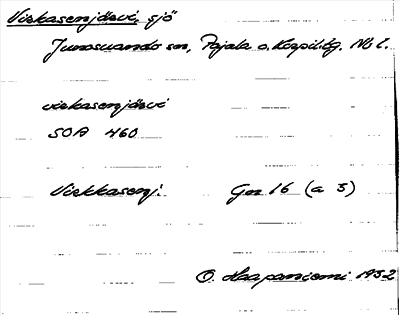 Viekasenjärvi, sjö
Junosuando sn, Pajala o. Korpil. tg. Nb l.
viekasenjärvi
SOA 460
Viekkasenj. Gn 16 (a 3)
O. Haapaniemi 1932